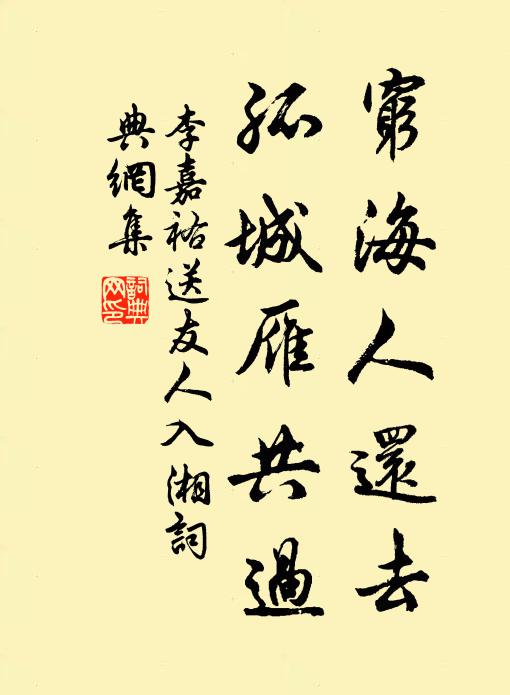 窮海人還去
孤城雁共過
李嘉祐送友人入湘詞
典網集
詞典網印